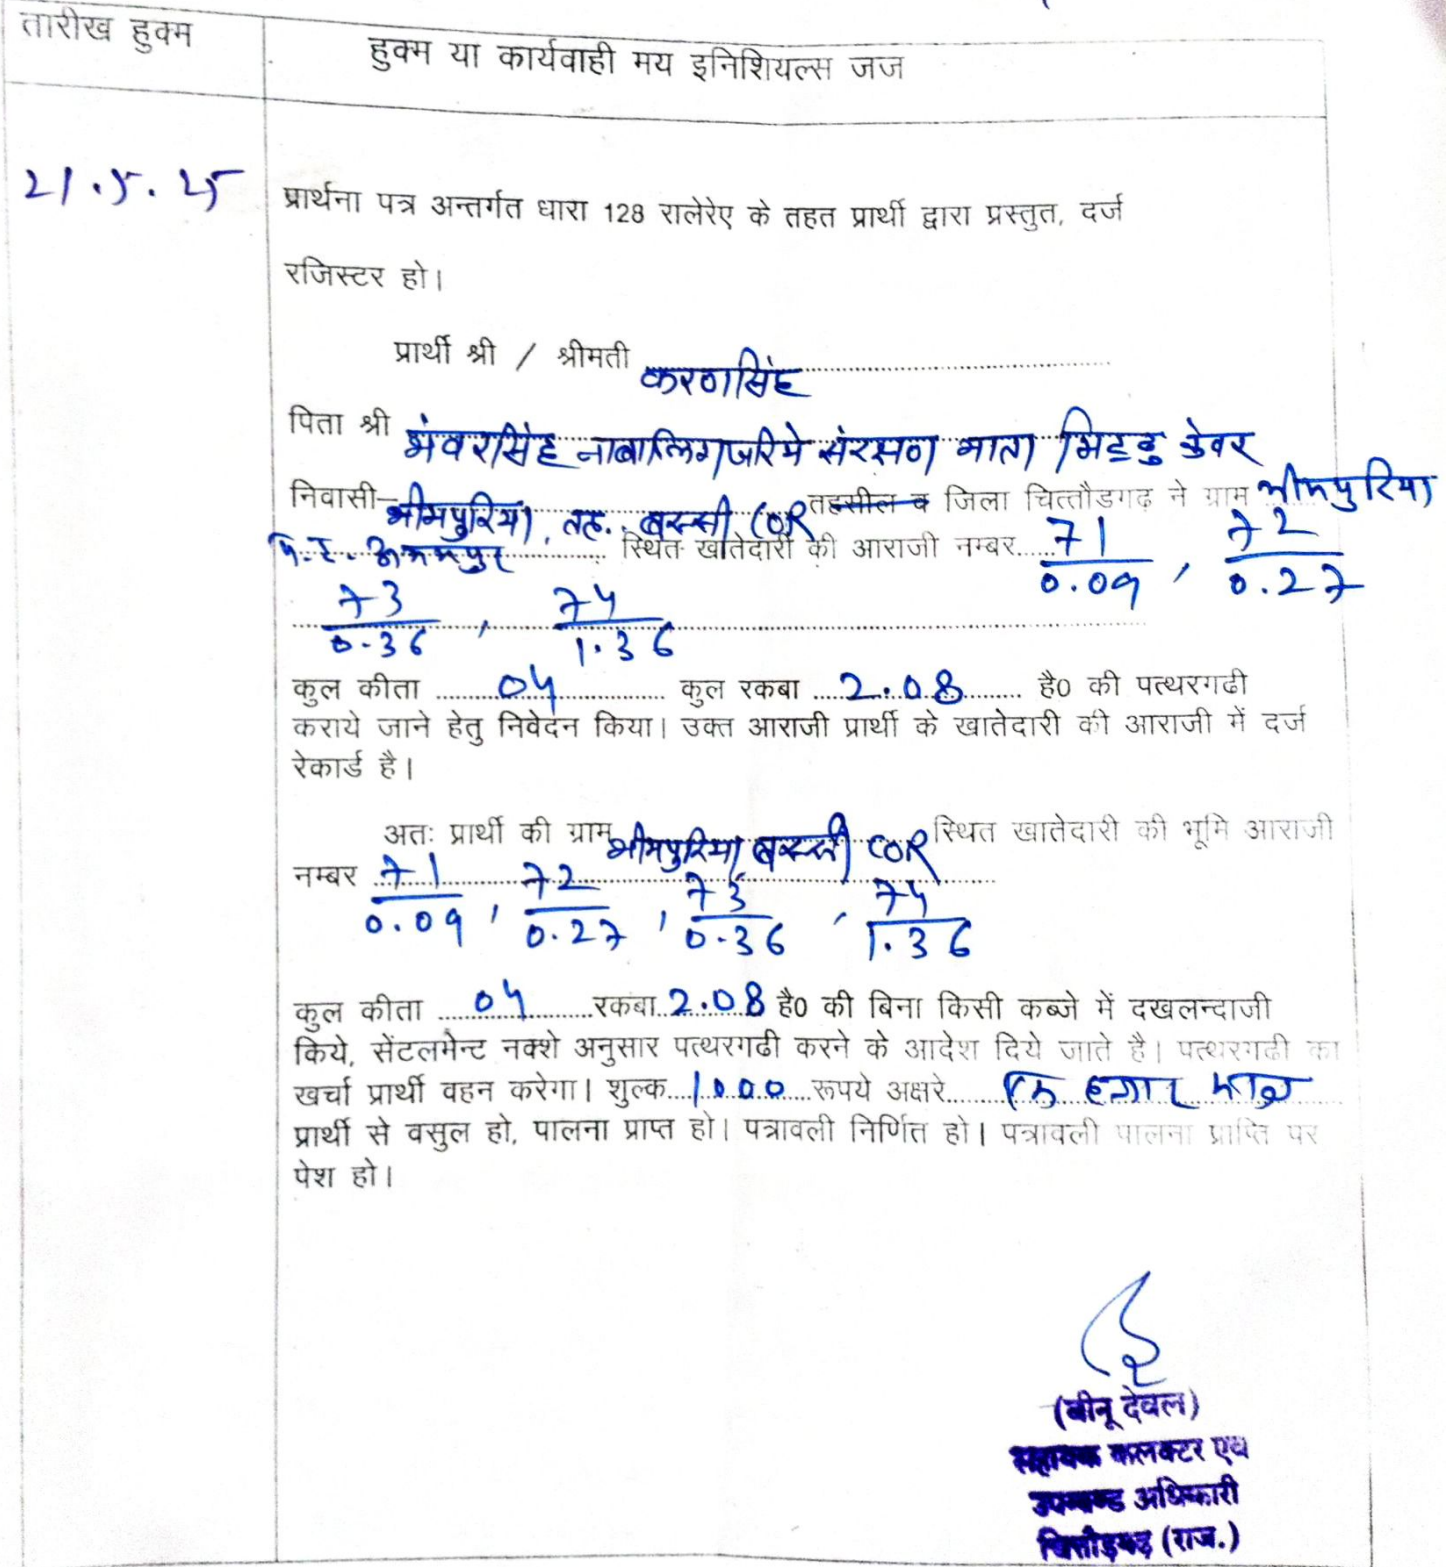 तारीख हुक्म
हुक्म या कार्यवाही मय इनिशियल्स जज
21.5.25
प्रार्थना पत्र अन्तर्गत धारा 128 रालेरेए के तहत प्रार्थी द्वारा प्रस्तुत, दर्ज
रजिस्टर हो।
प्रार्थी श्री / श्रीमती करणसिंह
पिता श्री भंवरसिंह नाबालिग जरिये संरक्षण माता कुंवर
निवासी भीमपुरिया, तह. बस्सी COR तहसील व जिला चित्तौडगढ ने ग्राम भीमपुरिया
स्थित खातेदारी की आराजी नम्बर 71/0.09, 72/0.27
73/0.36, 74/1.36
कुल कीता 04 कुल रकबा 2.08 है0 की पत्थरगढी
कराये जाने हेतु निवेदन किया। उक्त आराजी प्रार्थी के खातेदारी की आराजी में दर्ज
रेकार्ड है।
अतः प्रार्थी की ग्राम भीमपुरिया बस्सी COR स्थित खातेदारी की भूमि आराजी
नम्बर 71/0.09, 72/0.27, 73/0.36, 74/1.36
कुल कीता 04 रकबा 2.08 है0 की बिना किसी कब्जे में दखलन्दाजी
किये, सेंटलमेन्ट नक्शे अनुसार पत्थरगढी करने के आदेश दिये जाते है। पत्थरगढी का
खर्चा प्रार्थी वहन करेगा। शुल्क 1000 रूपये अक्षरे एक हजार मात्र
प्रार्थी से वसुल हो, पालना प्राप्त हो। पत्रावली निर्णित हो। पत्रावली पालना प्राप्ति पर
पेश हो।
(बीनू देवल)
सहायक कलक्टर एवं
उपखण्ड अधिकारी
चित्तौड़गढ़ (राज.)